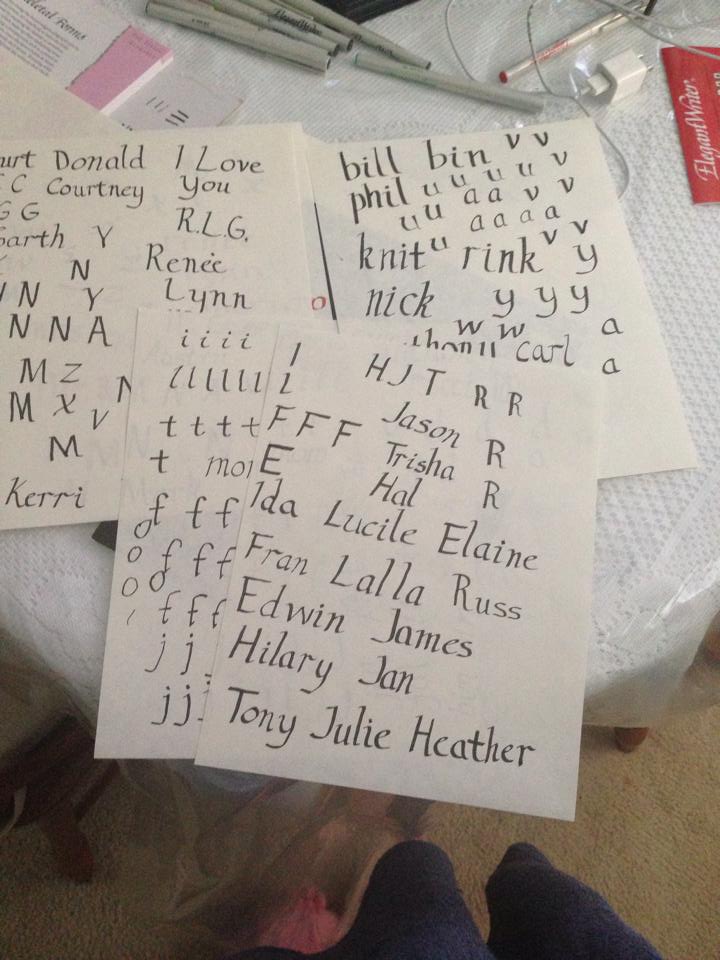 Forms
ElegantWriter
Donald I Love
C Courtney You
G G R.L.G.
Garth Y
N Renée
N Y Lynn
N N A
M Z N
M X V
M
Kerri
bill bin v v
phil u u u u v
u u a a v v
a a a a
knit u rink v v
y
nick y y y
w w a
carl a
i i i i
l l l l l l
t t t t
t
f f f
o
o f f f
o o
f f f
j j
j j j
I H J T R R
L Jason R
F F F Trisha
E Hal R
Ida Lucile Elaine
Fran Lalla Russ
Edwin James
Hilary Jan
Tony Julie Heather